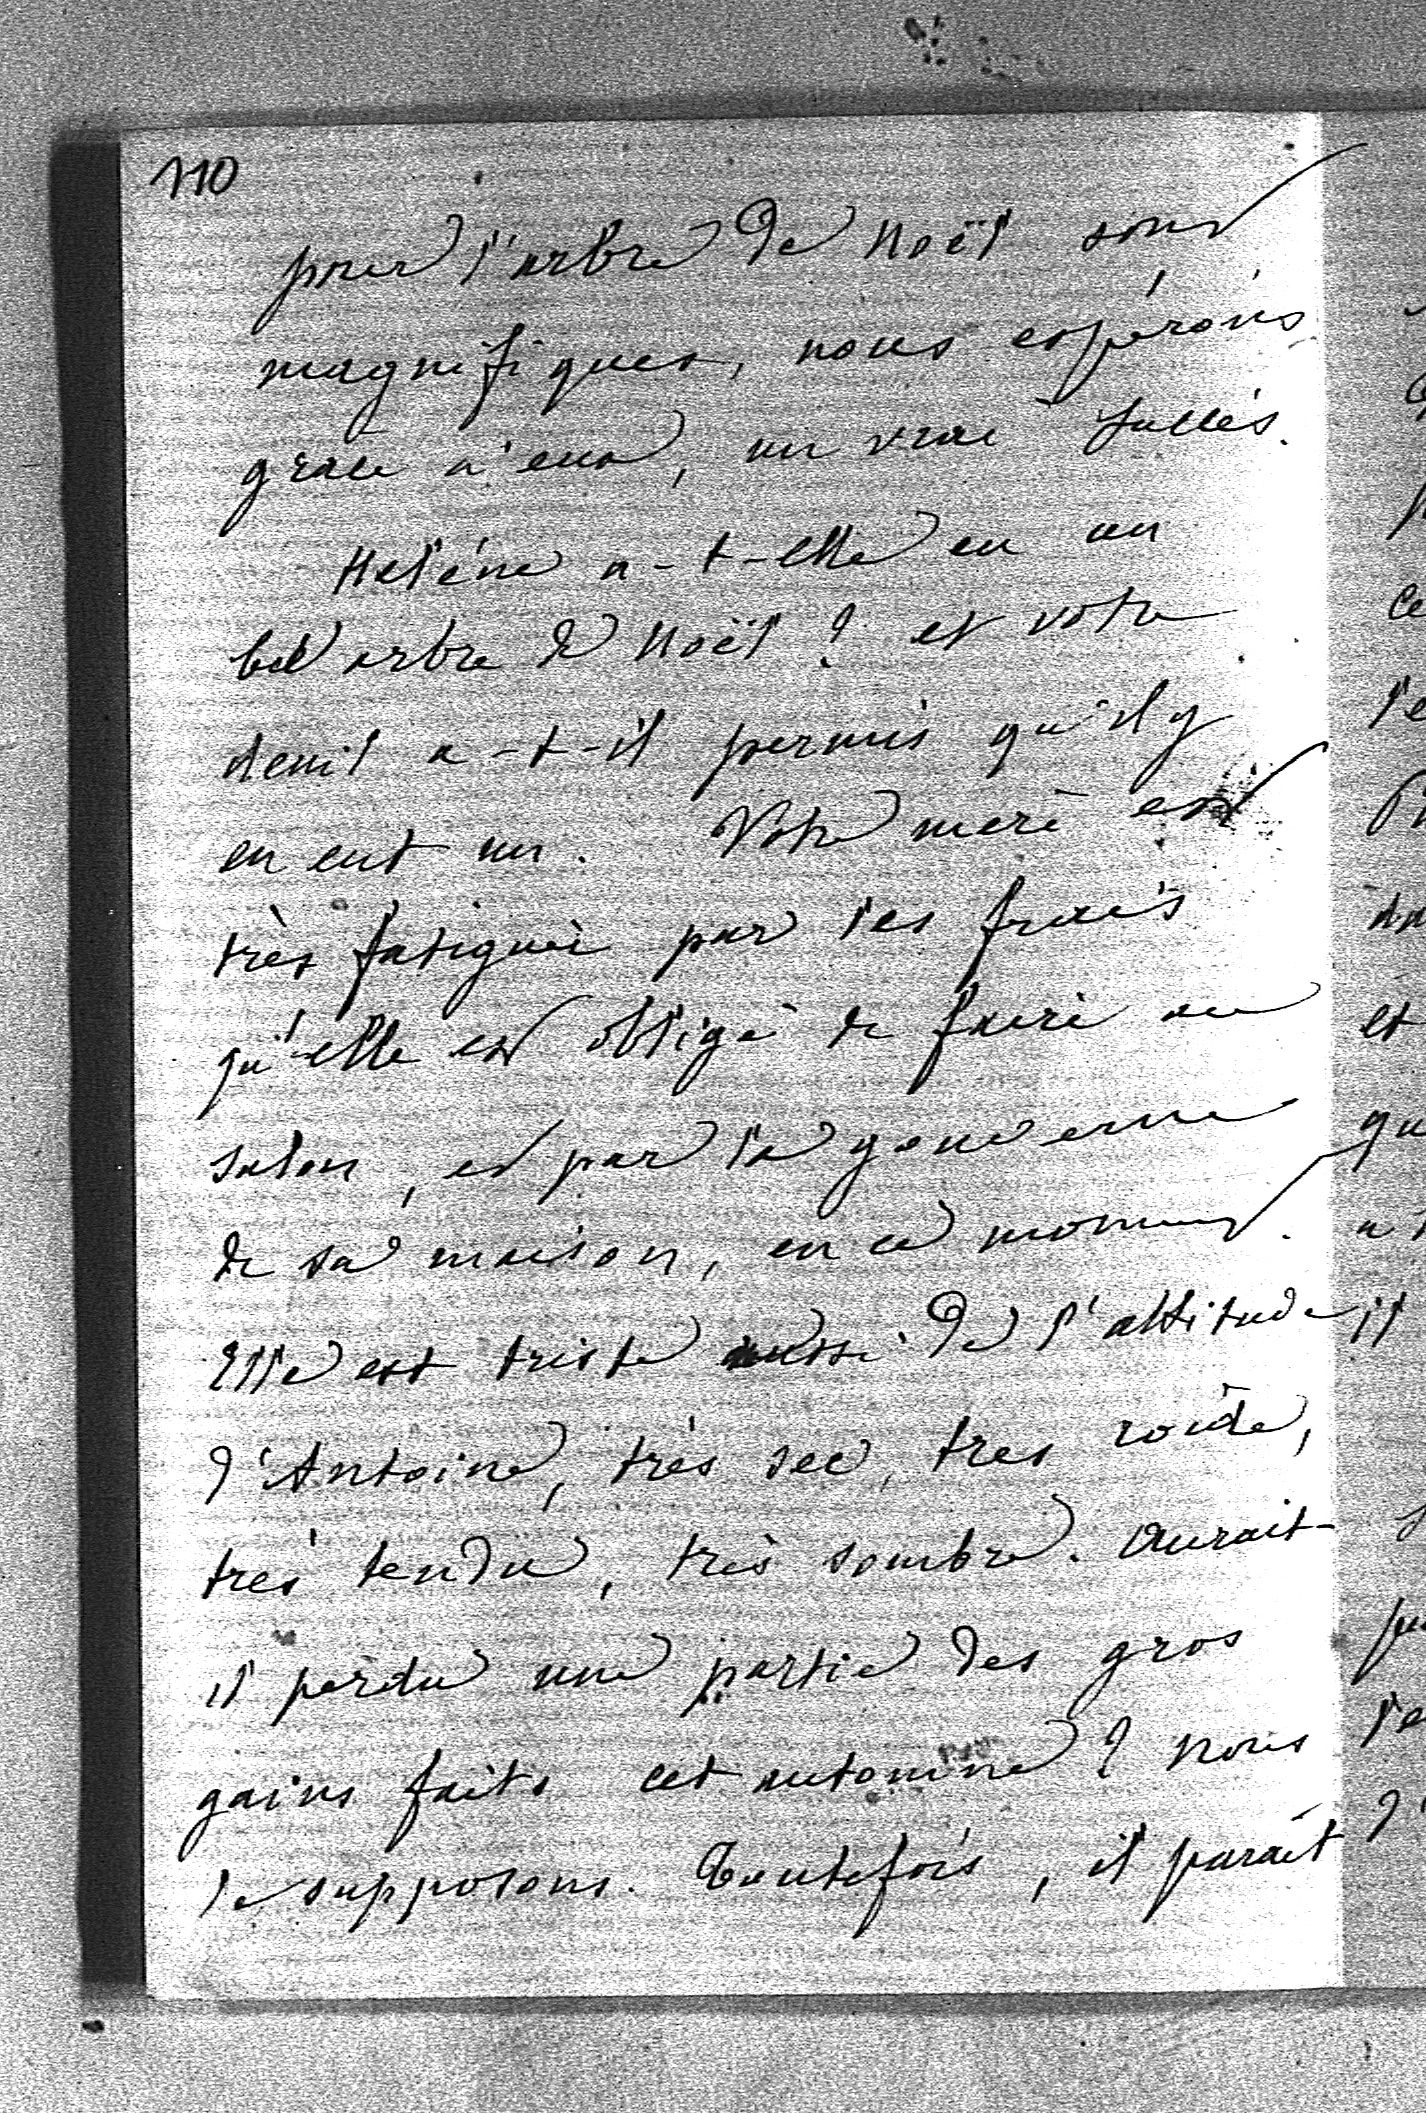 110
pour l'arbre de Noël sont
magnifiques, nous espérons
grace à eux, un vrai succès.
Hélène a-t-elle eu un
bel arbre de Noël ? et votre
deuil a-t-il permis qu'il y
en eut un. Votre mère est
très fatiguée par les frais
qu'elle est obligé de faire au
salon, et par la gouverne
de sa maison, en ce moment.
Elle est triste aussi de l'attitude
d'Antoine, très sec, très roide,
très tendu, très sombre. Aurait-
il perdu une partie des gros
gains faits cet automne ? nous
le supposons. Toutefois, il paraît